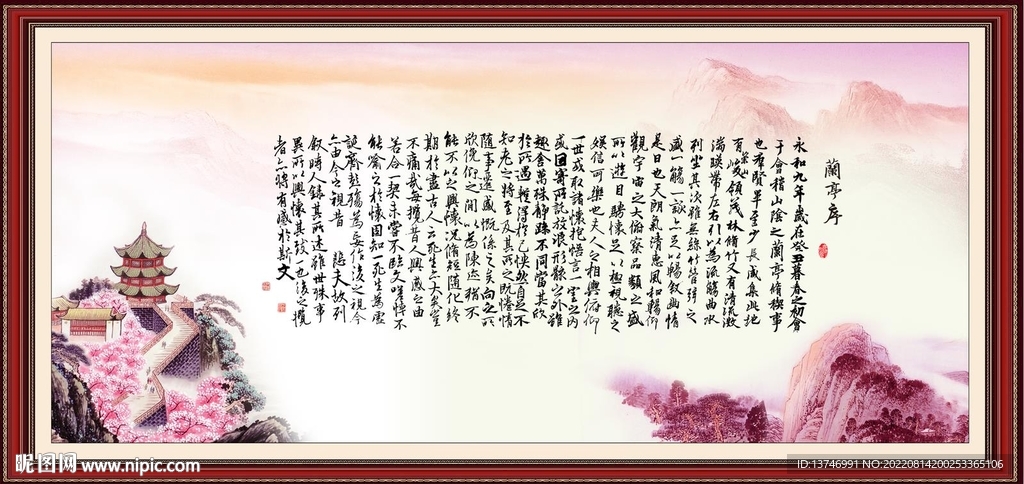 蘭亭序
永和九年歲在癸丑暮春之初會
于會稽山陰之蘭亭脩稧事
也羣賢畢至少長咸集此地
有崇山峻領茂林脩竹又有清流激
湍暎帶左右引以為流觴曲水
列坐其次雖無絲竹管弦之
盛一觴一詠亦足以暢敘幽情
是日也天朗氣清惠風和暢仰
觀宇宙之大俯察品類之盛
所以遊目騁懷足以極視聽之
娛信可樂也夫人之相與俯仰
一世或取諸懷抱悟言一室之內
或因寄所託放浪形骸之外雖
趣舍萬殊靜躁不同當其欣
於所遇暫得於己快然自足不
知老之將至及其所之既惓情
隨事遷感慨係之矣向之所
欣俛仰之間以為陳迹猶不
能不以之興懷況脩短隨化終
期於盡古人云死生亦大矣豈
不痛哉每攬昔人興感之由
若合一契未嘗不臨文嗟悼不
能喻之於懷固知一死生為虛
誕齊彭殤為妄作後之視今
亦由今之視昔 悲夫故列
敘時人錄其所述雖世殊事
異所以興懷其致一也後之攬
者亦將有感於斯文
昵图网 www.nipic.com
ID:13746991 NO:20220814200253365106